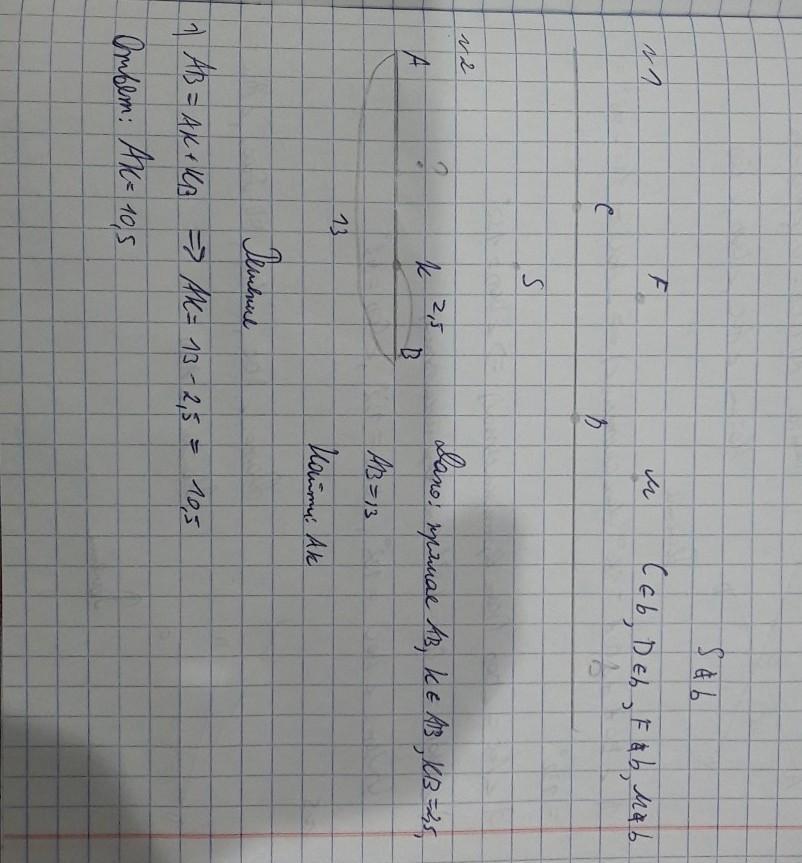 S∉b
№1 F M C∈b, D∈b, F∉b, M∉b
C D b
S
№2
A ? K 2,5 B Дано: прямая AB, K∈AB, KB=2,5,
AB=13
13 Найти: AK
Решение
1) AB=AK+KB => AK=13-2,5=10,5
Ответ: AK=10,5